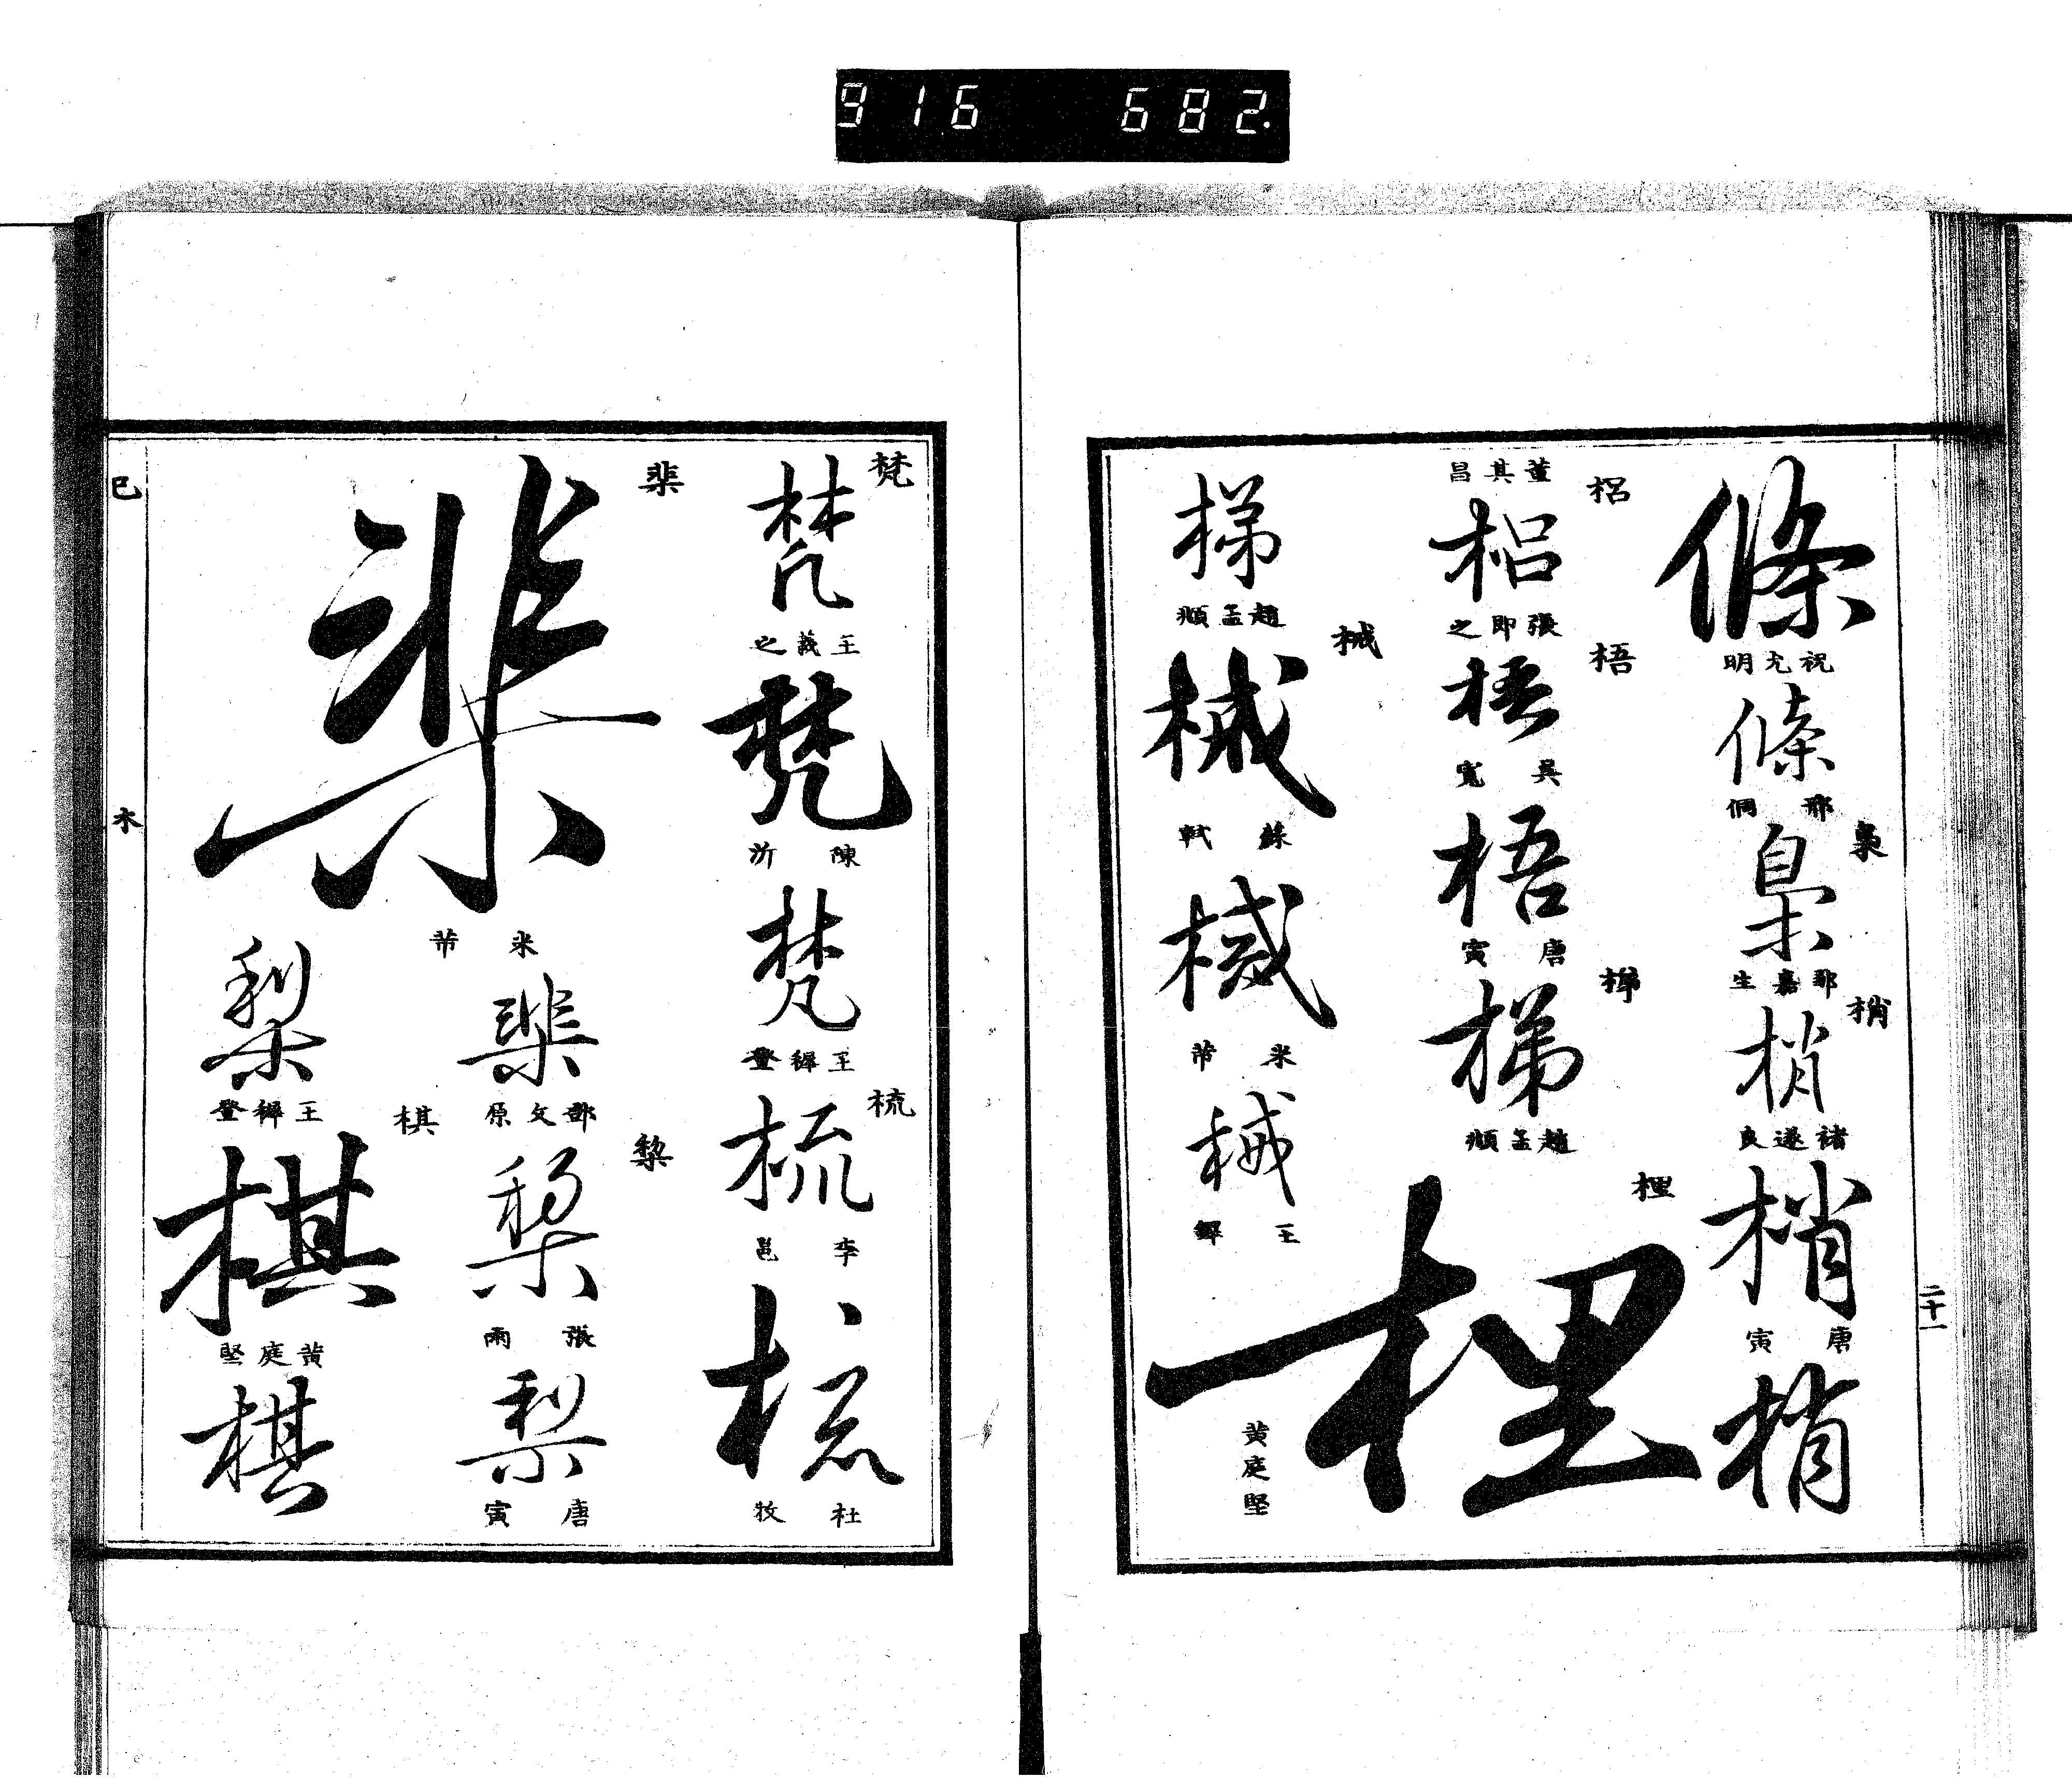 916 682.
二十一
條
祝允明
條
邢侗
梟
梟
邢嘉生
梢
梢
褚遂良
梢
唐寅
梢
董其昌
梠
梠
張即之
梧
梧
吳寬
梧
唐寅
梯
梯
趙孟頫
梩
梩
黃庭堅
梯
趙孟頫
械
械
蘇軾
械
米芾
械
王鐸
梵
梵
王羲之
梵
陳沂
梵
王穉登
梳
梳
李邕
梳
杜牧
棐
棐
米芾
棐
鄧文原
棃
棃
張雨
梨
唐寅
梨
王穉登
棋
棋
黃庭堅
棋
巳
木